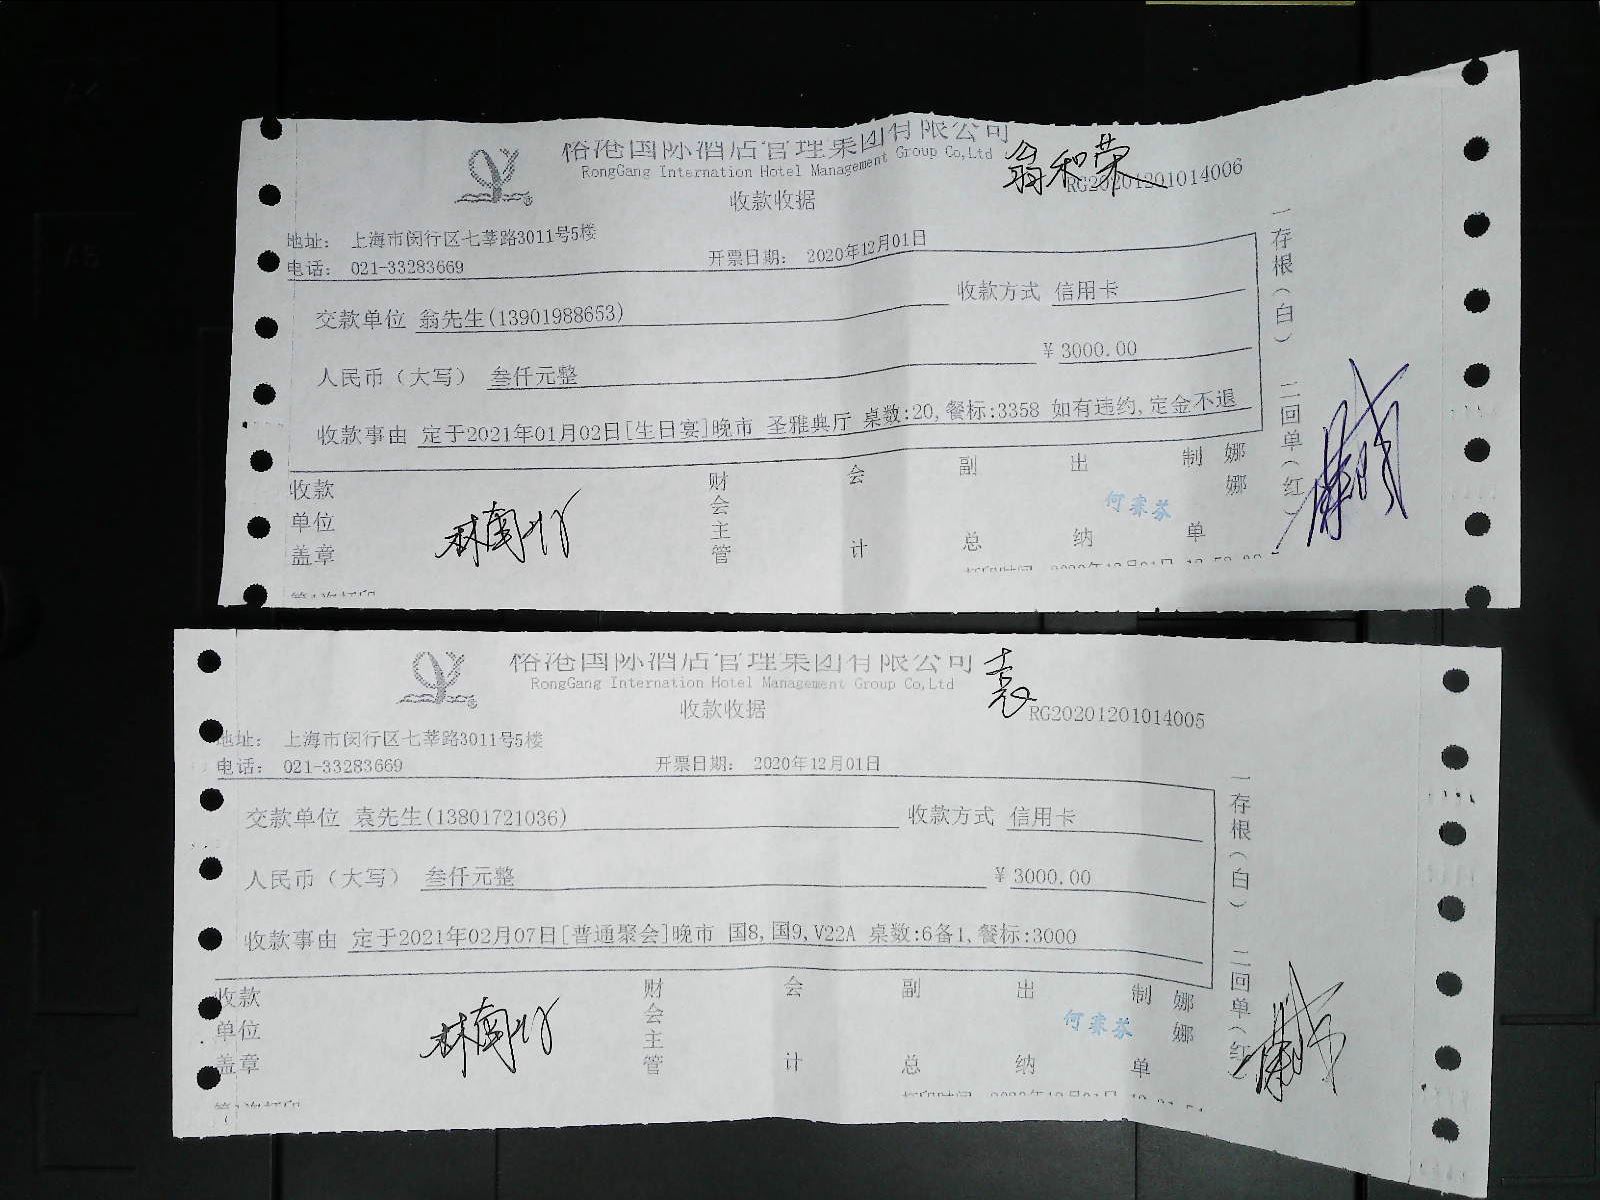 裕港国际酒店管理集团有限公司
RongGang Internation Hotel Management Group Co,Ltd
翁和荣
RG20201201014006
收款收据
地址： 上海市闵行区七莘路3011号5楼
电话： 021-33283669
开票日期： 2020年12月01日
交款单位 翁先生(13901988653)
收款方式 信用卡
人民币（大写） 叁仟元整
¥ 3000.00
收款事由 定于2021年01月02日[生日宴]晚市 圣雅典厅 桌数:20,餐标:3358 如有违约,定金不退
一存根（白） 二回单（红）
收款单位盖章
财会主管
会计
副总
出纳
何素芬
制单
娜娜
裕港国际酒店管理集团有限公司
RongGang Internation Hotel Management Group Co,Ltd
袁
RG20201201014005
收款收据
地址： 上海市闵行区七莘路3011号5楼
电话： 021-33283669
开票日期： 2020年12月01日
交款单位 袁先生(13801721036)
收款方式 信用卡
人民币（大写） 叁仟元整
¥ 3000.00
收款事由 定于2021年02月07日[普通聚会]晚市 国8,国9,V22A 桌数:6备1,餐标:3000
一存根（白） 二回单（红）
收款单位盖章
财会主管
会计
副总
出纳
何素芬
制单
娜娜